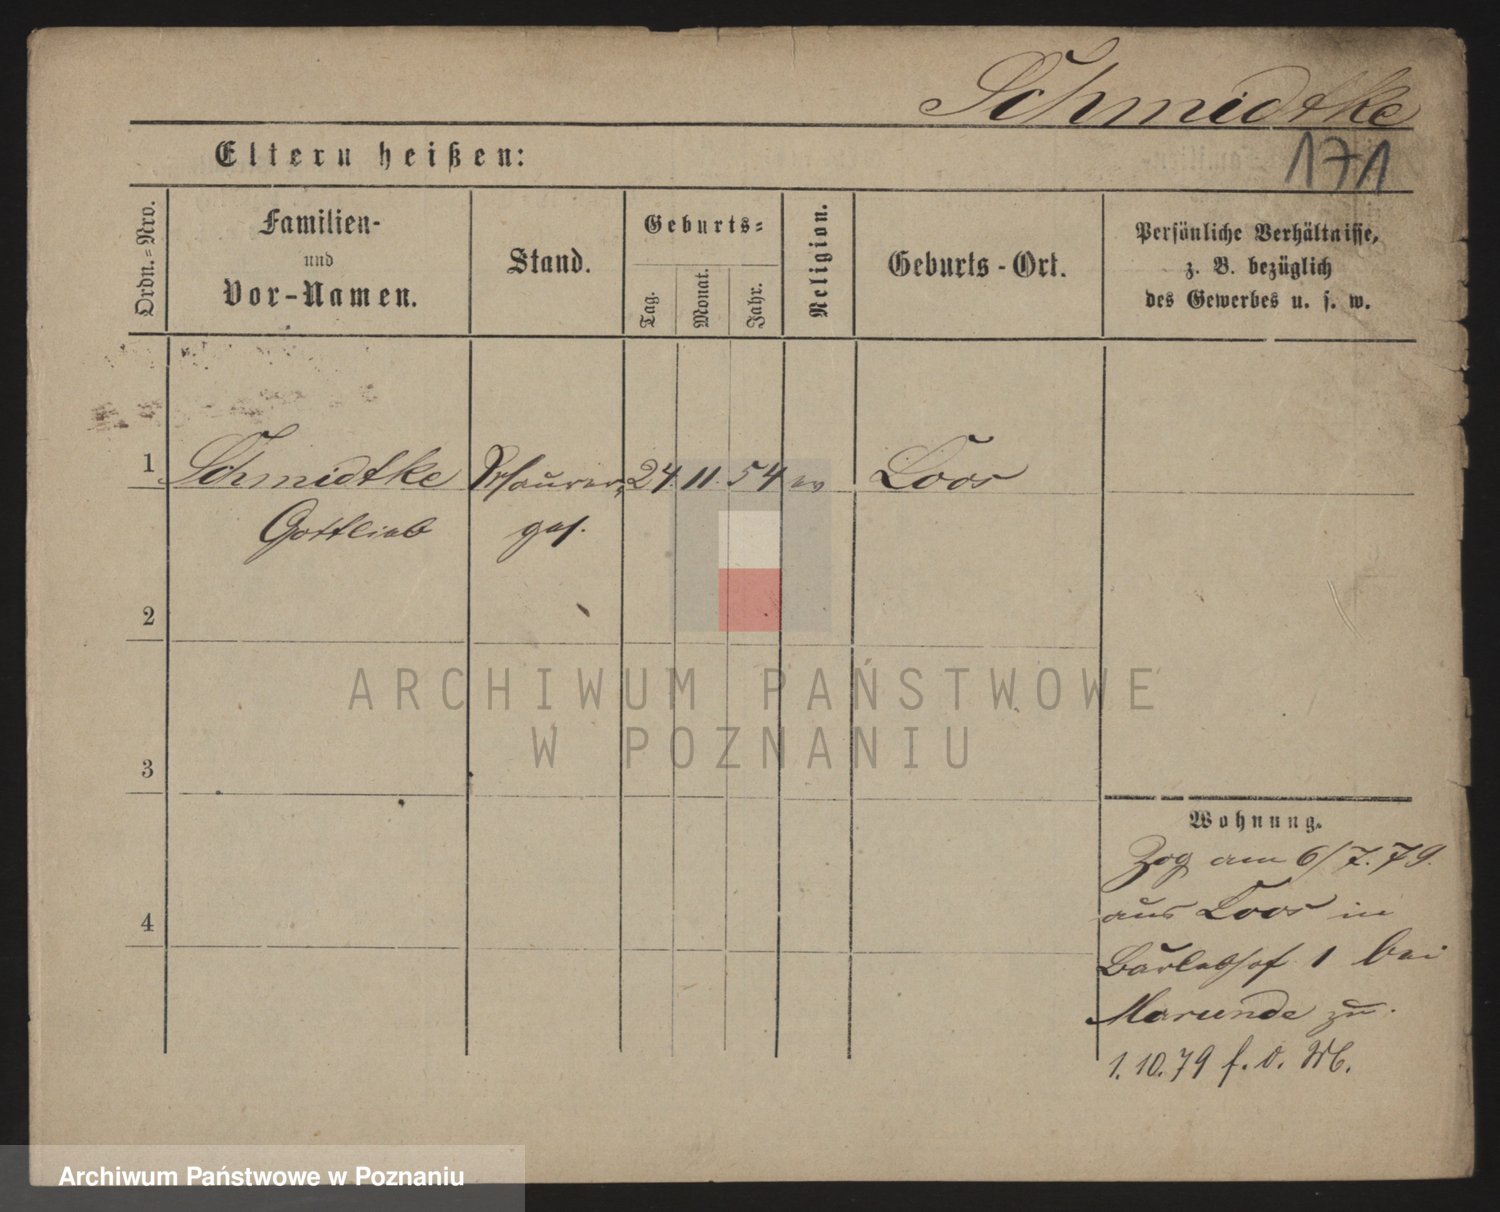 Schmidtke
171
Eltern heißen:
Ordn.-Nro.
Familien-
und
Vor-Namen.
Stand.
Geburts-
Tag.
Monat.
Jahr.
Religion.
Geburts-Ort.
Persönliche Verhältnisse,
z. B. bezüglich
des Gewerbes u. s. w.
1 Schmidtke 24. 11. 54 ev Loos
Gottlieb ges.
2
3
4
ARCHIWUM PAŃSTWOWE
W POZNANIU
Wohnung.
Zog am 6/7.79.
aus Loos in
1 bei
Marunde zu.
1.10.79 f. d.
Archiwum Państwowe w Poznaniu